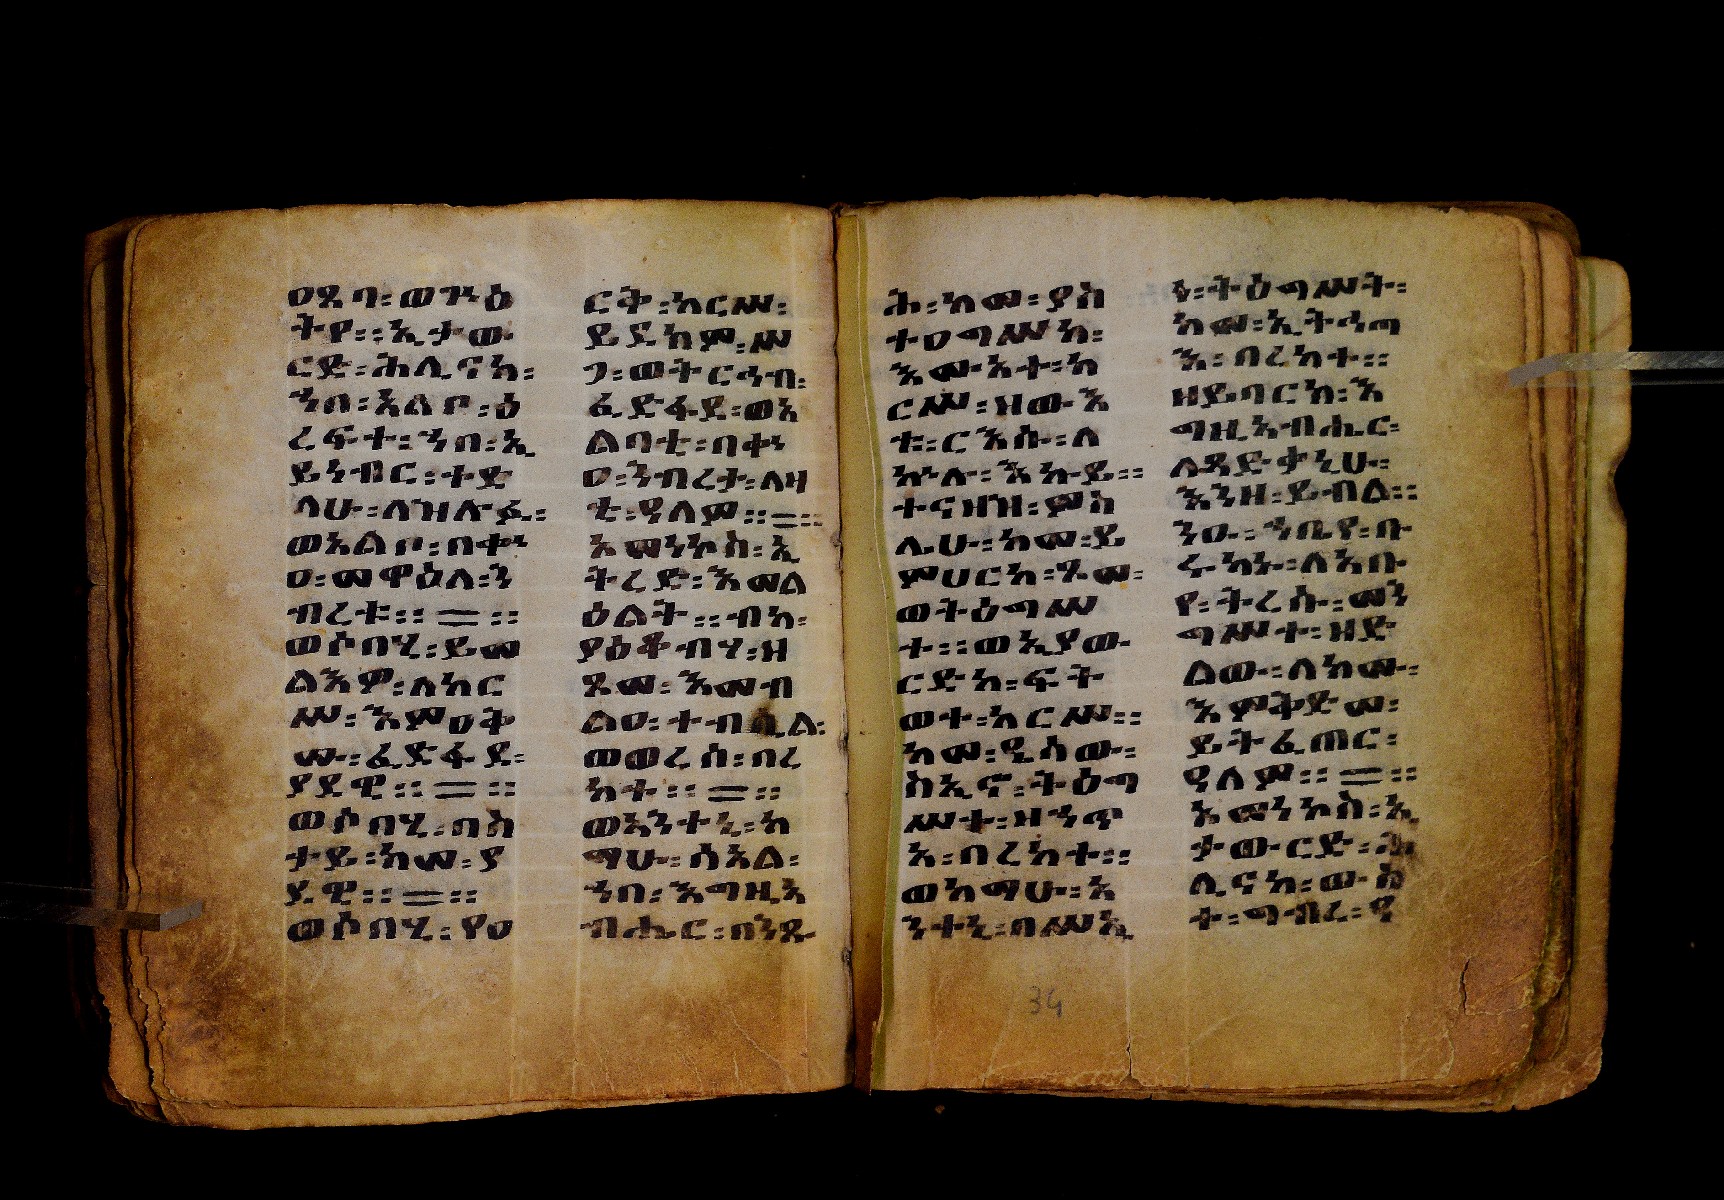 ዐጸባ፡ወግዕ
ትየ፡፡ኢታው
ርድ፡ሕሊናከ፡
ኀበ፡አልቦ፡ዕ
ረፍተ፡ኀበ፡ኢ
ይነብር፡ተድ
ላሁ፡ለዝሉፉ፡
ወአልቦ፡በቀኍ
ዐ፡መዋዕለ፡ን
ብረቱ፡፡ = ፡፡
ወሶበሂ፡ይመ
ልእዎ፡ለከር
ሥ፡እምዐቅ
ሙ፡ፈድፋደ፡
ያደዊ፡፡ = ፡፡
ወሶበሂ፡በስ
ታይ፡ከመ፡ያ
ደዊ፡፡ = ፡፡
ወሶበሂ፡የዐ
ርት፡ከርሥ፡
ይደክም፡ሥ
ጋ፡ወትርኅብ፡
ፈድፋደ፡ወአ
ልባቲ፡በቀኍ
ዐ፡ኀብረታ፡ለዛ
ቲ፡ዓለም፡፡ = ፡፡
አመንኮስ፡ኢ
ትረድ፡እመል
ዕልት፡፡ብከ፡
ያዕቆብሃ፡ዘ
ጾመ፡እመብ
ልዐ፡ተብሲል፡
ወወረሰ፡በረ
ከተ፡፡ = ፡፡
ወአንተኒ፡ከ
ማሁ፡ሰአል፡
ኀበ፡እግዚአ
ብሔር፡በንጹ
ሕ፡ከመ፡ያስ
ተዐግሥከ፡
እመ፡አተ፡ከ
ርሥ፡ዘውእ
ቱ፡ርእሱ፡ለ
ኵሉ፡እኩይ፡፡
ተናዘዝ፡ምስ
ሌሁ፡ከመ፡ይ
ምሀርከ፡ጾመ፡
ወትዕግሥ
ተ፡፡ወኢያው
ርድከ፡ፍት
ወተ፡ከርሥ፡፡
ከመ፡ዔሳው፡
ስኢኖ፡ትዕግ
ሥተ፡ዘኀጥ
አ፡በረከተ፡፡
ወከማሁ፡አ
ንተኒ፡በሥኢ
ነ፡ትዕግሥት፡
ከመ፡ኢትኅጣ
እ፡በረከተ፡፡
ዘይባርክ፡እ
ግዚአብሔር፡
ለጻድቃኒሁ፡
እንዘ፡ይብል፡፡
ንዑ፡ኀቤየ፡ቡ
ሩካኑ፡ለአቡ
የ፡ትረሱ፡መን
ግሥተ፡ዘድ
ልው፡ለክሙ፡
እምቅድመ፡
ይትፈጠር፡
ዓለም፡፡ = ፡፡
አመንኮስ፡ኢ
ታውርድ፡ሕ
ሊናከ፡ውስ
ተ፡ግብረ፡ዓ
34